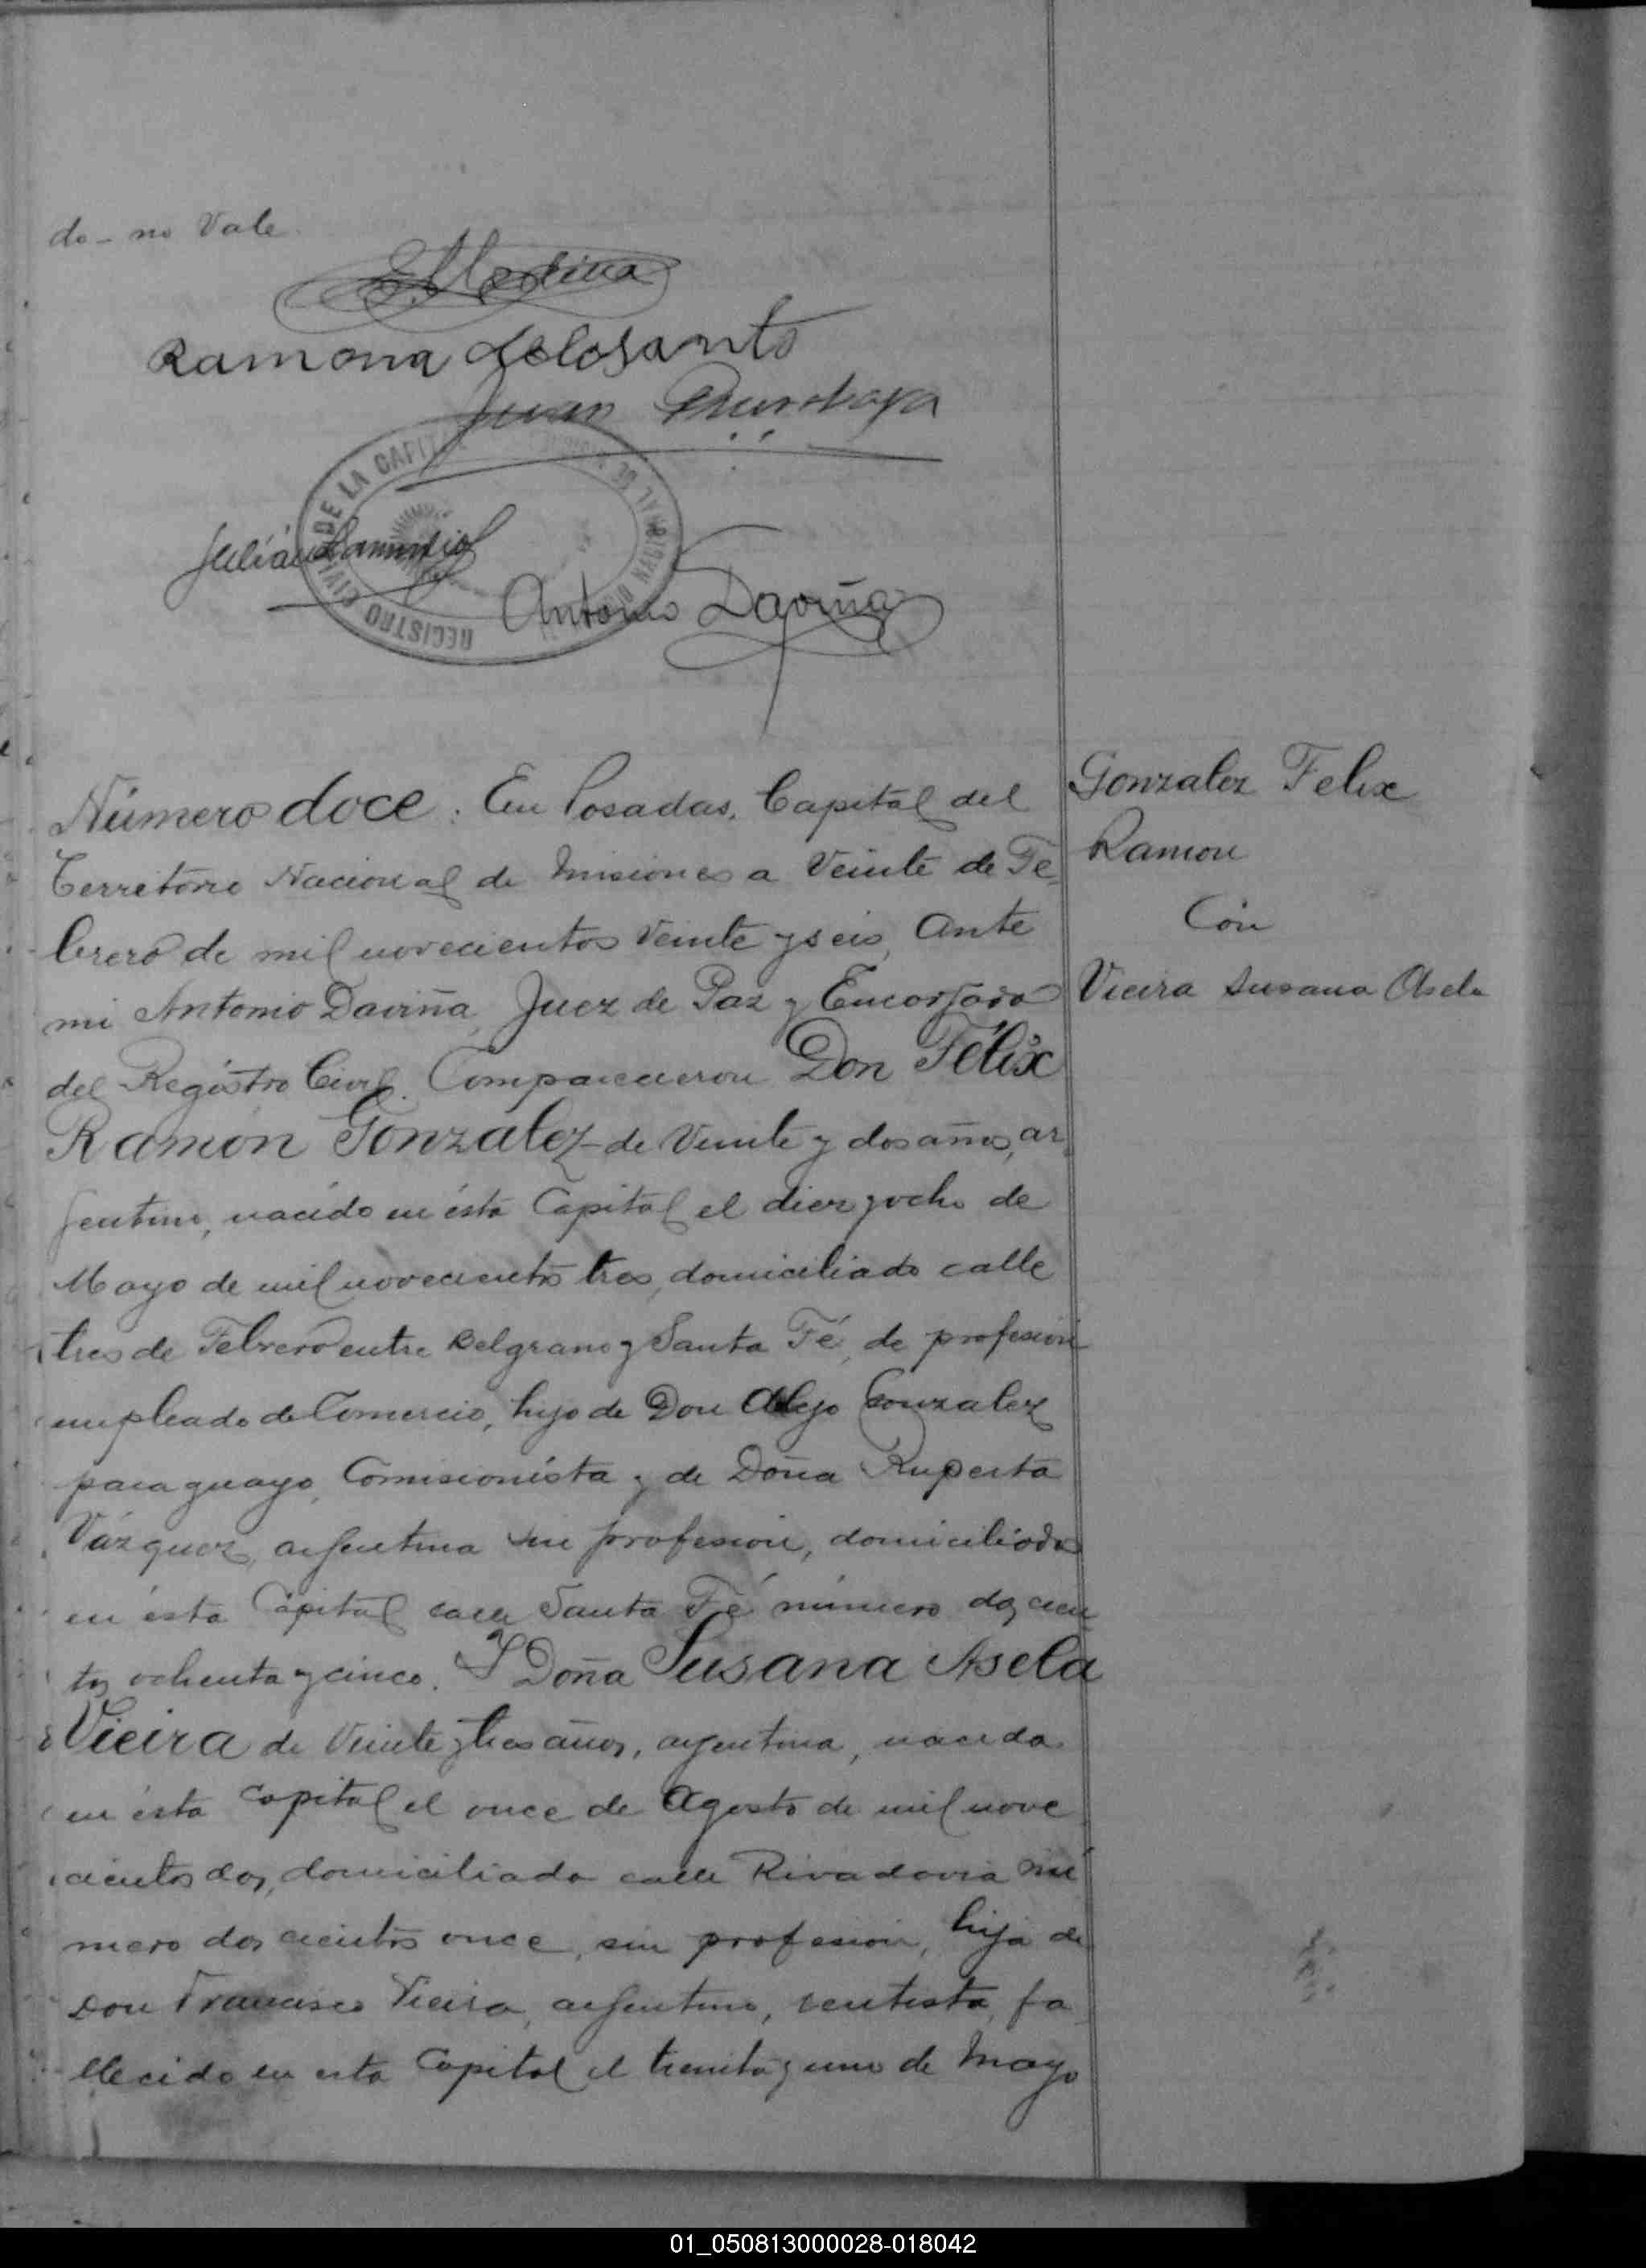 do - no Vale.
E Medina
Ramona delosanto
Juan
DE LA CAPITAL
REGISTRO CIVIL
Julián
Antonio Daviña
Número doce: En Posadas, Capital del
Gonzalez Felix
Territorio Nacional de Misiones a Veinte de Fe
Ramon
brero de mil novecientos veinte y seis, Ante
Con
mi Antonio Daviña, Juez de Paz y Encargado
Vieira Susana Asela
del Registro Civil. Comparecieron Don Félix
Ramón González de Veinte y dos años, ar
gentino, nacido en ésta Capital el diez y ocho de
Mayo de mil novecientos tres, domiciliado calle
tres de Febrero entre Belgrano y Santa Fé, de profesión
empleado de Comercio, hijo de Don Alejo Gonzalez
paraguayo, Comisionista y de Doña Ruperta
Vázquez, argentina sin profesión, domiciliado
en ésta Capital calle Santa Fé número doscien
tos ochenta y cinco. Y Doña Susana Asela
Vieira de Veinte y tres años, argentina, nacida
en ésta Capital el once de Agosto de mil nove
cientos dos, domiciliada calle Rivadavia nú
mero doscientos once, sin profesión, hija de
Don Francisco Vieira, argentino, rentista, fa
llecido en esta Capital el treinta y uno de Mayo
01_050813000028-018042